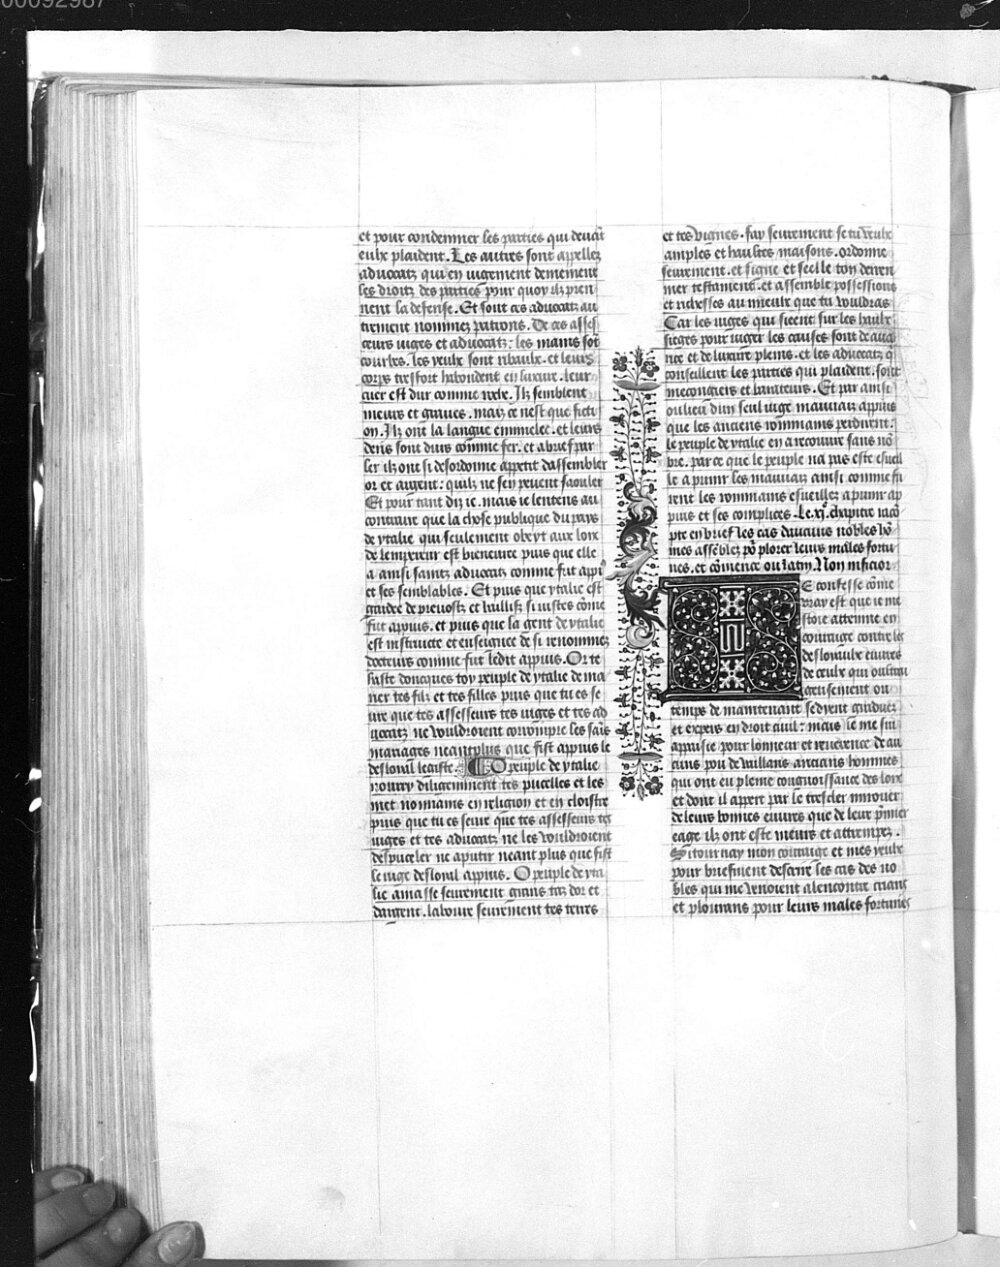 00092987
et pour condemner les parties qui deuāt
eulx plaident. Les autres sont appellez
aduocatz qui en iugement demeinent
les droitz des parties pour quoy ilz pren
nent la defense. Et sont ces aduocatz au
trement nommez patrons. De ces asses
ceurs iuges et aduocatz: les mains sōt
courbes. les yeulx sont ribaulx. et leurs
corps tresfort habondent en luxure. leur
cuer est dur comme roche. Ilz semblent
meurs et graues. mais ce nest que ficti
on. Ilz ont la langue emmielee. et leurs
dens sont durs cōme fer. et a brief par
ler ilz ont si desordonne appetit dassembler
or et argent: quilz ne sen peuent saouler
Et pour tant dis ie. mais ie lentens au
contraire que la chose publique du pays
de ytalie qui seulement obeyt aux loix
de lempereur est bieneuree puis que elle
a ainsi sains aduocatz comme fut appi
et ses semblables. Et puis que ytalie est
gardee de preuostz et baillifz si iustes cōme
fut appius. et puis que la gent de ytalie
est instruicte et enseignee de si renommez
docteurs comme fut ledit appius. Or te
haste doncques toy peuple de ytalie de ma
rier tes filz et tes filles puis que tu es se
ure que tes assesseurs tes iuges et tes ad
uocatz ne vouldroient corrompre les sais
mariages neantplus que fist appius le
desloial legiste. O peuple de ytalie
nourry diligemment tes pucelles et les
met nonnains en religion et en cloistre
puis que tu es seure que tes assesseurs tes
iuges et tes aduocatz ne les vouldroient
despuceler ne aputir neant plus que fist
le iuge desloial appius. O peuple de yta
lie amasse seurement grans tas dor et
dargent. laboure seurement tes terres
et tes vignes. fay seurement se tu veulx
amples et haultes maisons. ordonne
seurement. et signe et seelle ton derren
nier testament. et assemble possessions
et richesses au mieulx que tu vouldras
Car les iuges qui sieent sur les haulx
sieges pour iuger les causes sont de aua
rice et de luxure pleins. et les aduocatz q̄
conseillent les parties qui plaident. sont
mecongiers et barateurs. Et par ainsi
ou lieu dun seul iuge mauuaiz appius
que les anciens rommains perdirent.
le peuple de ytalie en a recouure sans nō
bre. par ce que le peuple na pas este esueil
le a punir les mauuaiz ainsi comme fu
rent les rommains esueillez a punir ap
pius et ses complices. Le .xj. chapitre racō
pte en brief les cas daucuns nobles hō
mes assēblez po' plorer leurs males fortu
nes. et cōmence ou latin. Non inficior
E confesse cōme
vray est que ie me
stoie atteinne en
couraige contre les
desloiaulx euures
de ceulx qui oultrai
geusement ou
temps de maintenant se dient gradues
et expers en droit ciuil: mais ie me sui
appaisie pour lonneur et reuerence de au
cuns peu de vaillans anciens hommes
qui ont eu pleine congnoissance des loix
et dont il appert par le tresclier mirouer
de leurs bonnes euures que de leur p̄mier
eage ilz ont este meurs et attrempez.
Si tournay mon couraige et mes yeulx
pour briefment descrire les cas des no
bles qui me venoient alencontre crians
et plourans pour leurs males fortunes